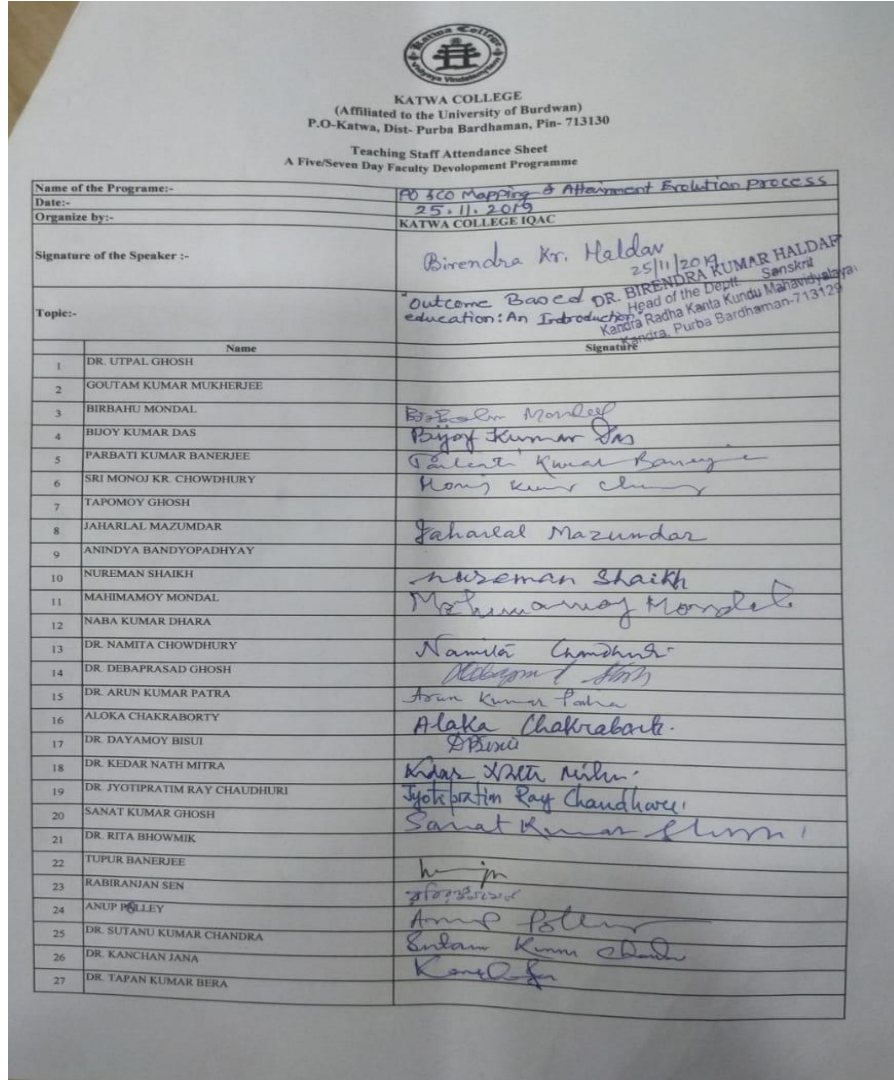 Katwa College
Vidyaya Vindateamrytam
KATWA COLLEGE
(Affiliated to the University of Burdwan)
P.O-Katwa, Dist- Purba Bardhaman, Pin- 713130
Teaching Staff Attendance Sheet
A Five/Seven Day Faculty Devolopment Programme
Name of the Programe:- PO &CO Mapping & Attainment Evolution process
Date:- 25.11.2019
Organize by:- KATWA COLLEGE IQAC
Signature of the Speaker :- Birendra Kr. Haldar
25/11/2019
DR. BIRENDRA KUMAR HALDAR
Head of the Deptt Sanskrit
Kandra Radha Kanta Kundu Mahavidyalaya
Kandra, Purba Bardhaman-713129
Topic:- "Outcome Based
education: An Introduction"
Name Signature
1 DR. UTPAL GHOSH
2 GOUTAM KUMAR MUKHERJEE
3 BIRBAHU MONDAL Birbahu Mondal
4 BIJOY KUMAR DAS Bijoy Kumar Das
5 PARBATI KUMAR BANERJEE Parbati Kumar Banerjee
6 SRI MONOJ KR. CHOWDHURY Monoj Kumar
7 TAPOMOY GHOSH
8 JAHARLAL MAZUMDAR Jaharlal Mazumdar
9 ANINDYA BANDYOPADHYAY
10 NUREMAN SHAIKH nureman Shaikh
11 MAHIMAMOY MONDAL Mahimamoy Mondal
12 NABA KUMAR DHARA
13 DR. NAMITA CHOWDHURY Namita Chowdhury
14 DR. DEBAPRASAD GHOSH
15 DR. ARUN KUMAR PATRA Arun Kumar Patra
16 ALOKA CHAKRABORTY Alaka Chakraborti.
17 DR. DAYAMOY BISUI DBisui
18 DR. KEDAR NATH MITRA Kedar Nath Mitra.
19 DR. JYOTIPRATIM RAY CHAUDHURI Jyotipratim Ray Chaudhuri
20 SANAT KUMAR GHOSH Sanat Kumar Ghosh
21 DR. RITA BHOWMIK
22 TUPUR BANERJEE
23 RABIRANJAN SEN রবিরঞ্জন সেন
24 ANUP POLLEY Anup Polley
25 DR. SUTANU KUMAR CHANDRA Sutanu Kumar Chandra
26 DR. KANCHAN JANA
27 DR. TAPAN KUMAR BERA